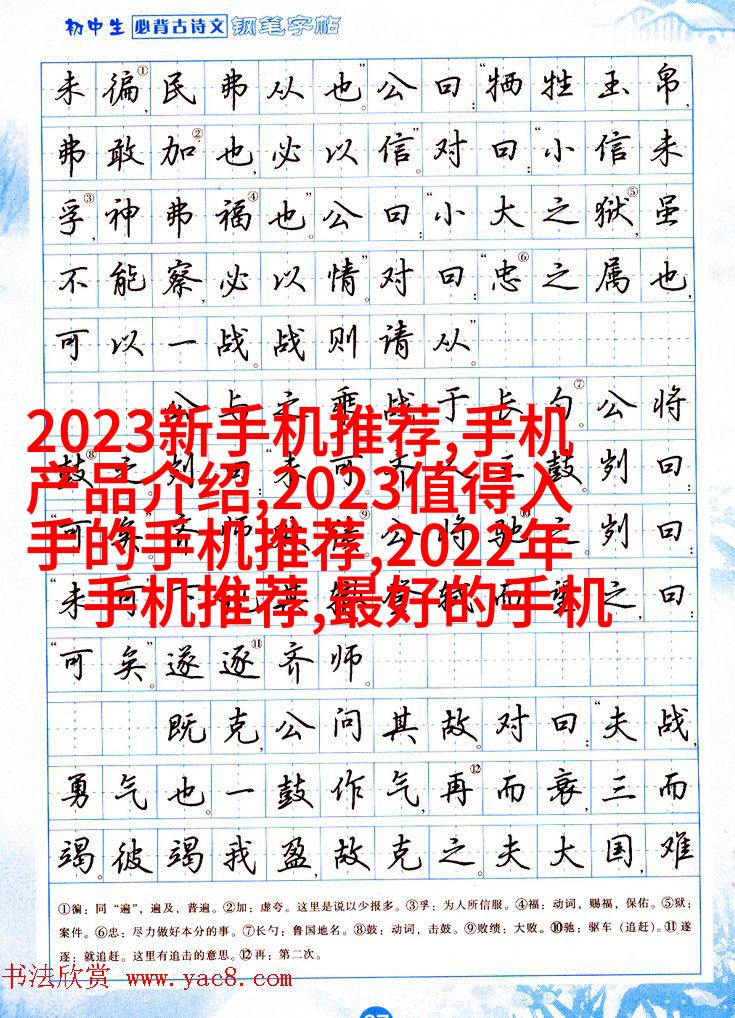 初中生 必背古诗文 钢笔字帖
未徧①,民弗从也”。公曰:“牺牲玉帛,
弗敢加②也,必以信”。对曰:“小信未
孚③,神弗福④也”。公曰:“小大之狱⑤,虽
不能察,必以情”。对曰:“忠⑥之属也,
可以一战。战则请从”。
公与之乘,战于长勺⑦。公将
2023新手机推荐,手机
鼓⑧之。刿曰:“未可”。齐人三鼓。刿曰:
产品介绍,2023值得入
“可矣”。齐师败绩⑨。公将驰⑩之。刿曰:
手的手机推荐,2022年
“未可”。下视其辙,登轼而望之,曰:
手机推荐,最好的手机
“可矣”。遂逐⑪齐师。
既克,公问其故。对曰:“夫战,
勇气也。一鼓作气,再⑫而衰,三而
竭。彼竭我盈,故克之。夫大国,难
①徧:同“遍”,遍及,普遍。②加:虚夸。这里是说以少报多。③孚:为人所信服。④福:动词,赐福,保佑。⑤狱:
案件。⑥忠:尽力做好本分的事。⑦长勺:鲁国地名。⑧鼓:动词,击鼓。⑨败绩:大败。⑩驰:驱车(追赶)。⑪遂
逐:就追赶。这里有追击的意思。⑫再:第二次。
书法欣赏 www.yac8.com